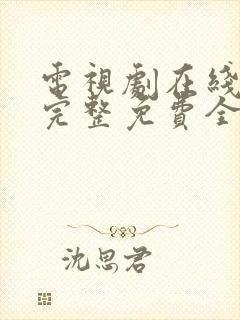 電視劇在綫
完整免費全
沈思君